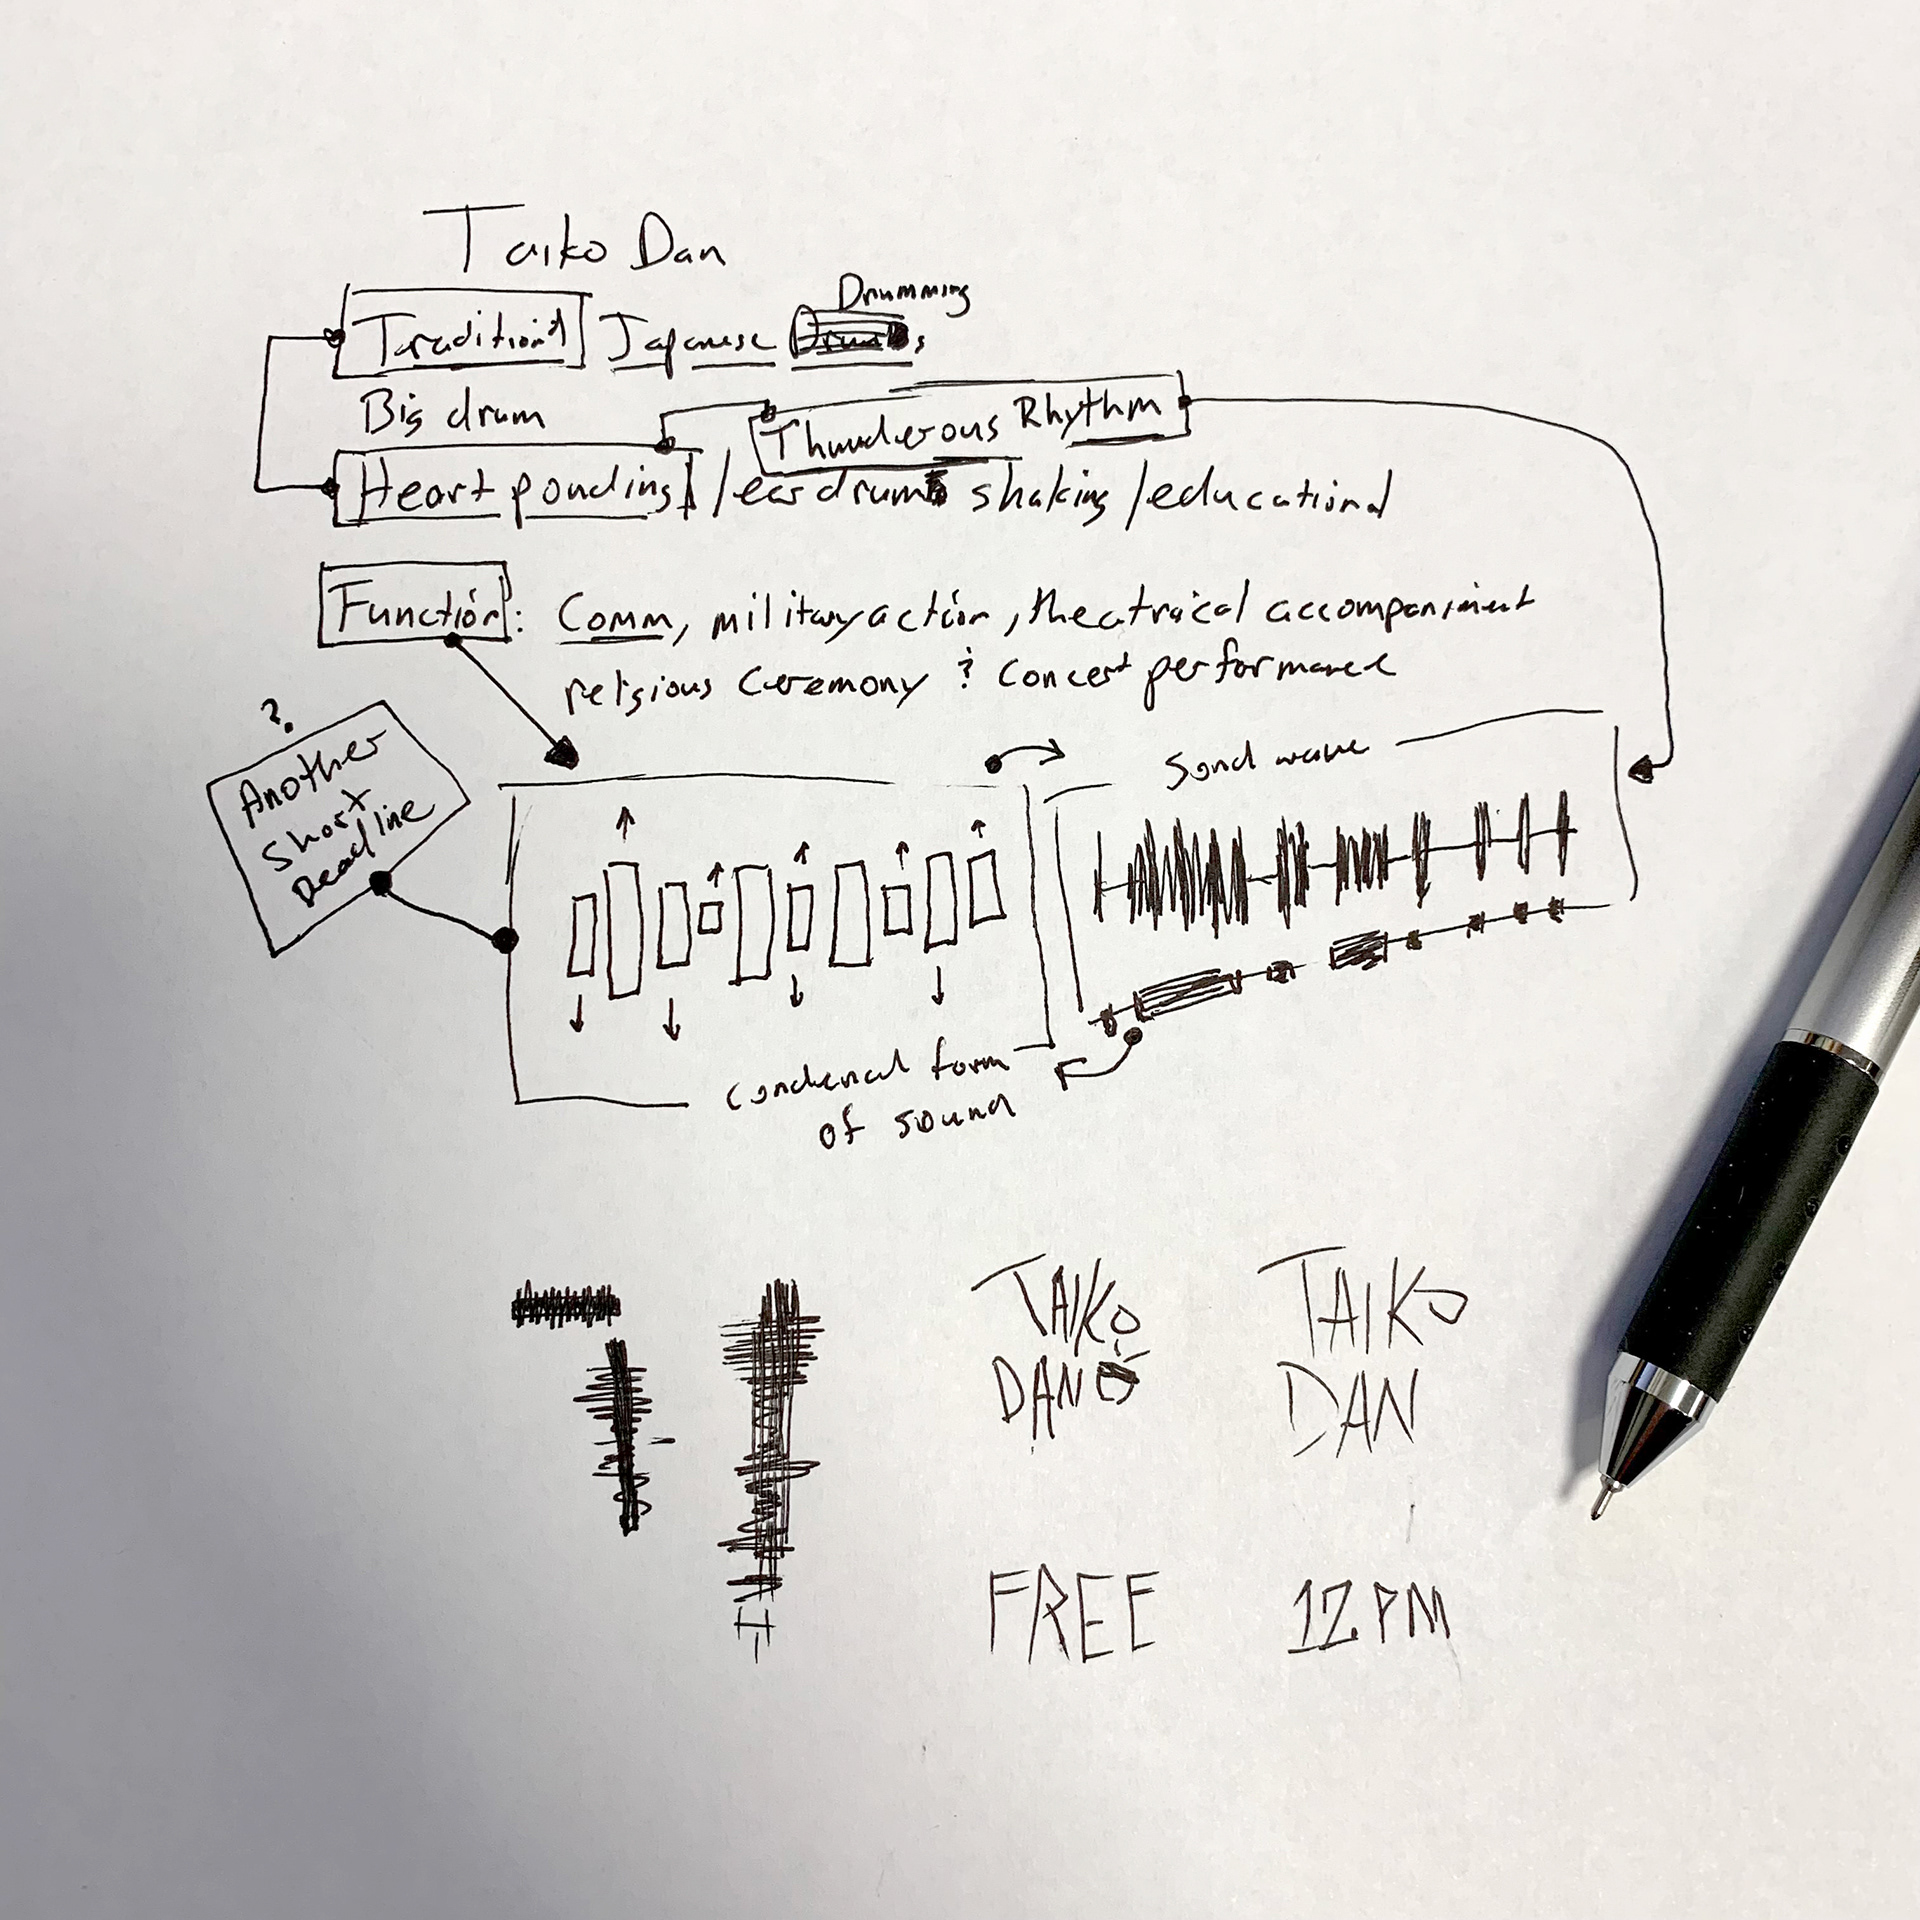 Taiko Dan
Drumming
Taraditional Japanese Drums
Big drum
Thunderous Rhythm
Heart pounding / ear drum shaking / educational
Function: Comm, military action, theatraical accompaniment
religious Ceremony & Concert performance
?
Another
Short
Deadline
Sond wave
condensed form
of sound
TAIKO
DANO
TAIKO
DAN
FREE
12 PM